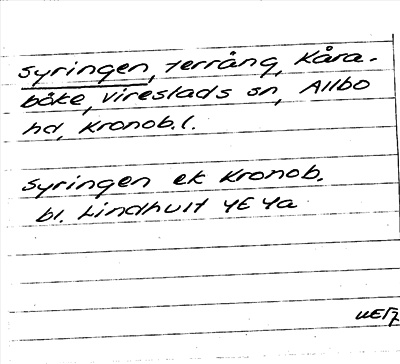 Syringen, terräng, Kåra-
böke, Vireslads sn, Allbo
hd, Kronob. l.
Syringen ek Kronob.
bl. Lindhult 4E 4a